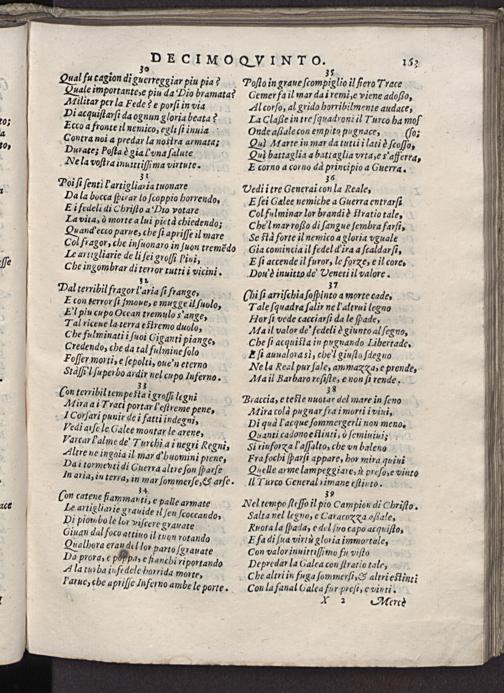 DECIMOQVINTO. 163
30
Qual fu cagion di guerreggiar piu pia?
Quale importante, e piu da Dio bramata?
Militar per la Fede? e porsi in via
Di acquistarsi da ognun gloria beata?
Ecco a fronte il nemico, egli s'inuia
Contra noi a predar la nostra armata;
Durate; Posta è gia l'vna salute
Ne la vostra inuittissima virtute.
31
Poi si sentì l'artigliaria tuonare
Da la bocca spirar lo scoppio horrendo,
E i fedeli di Christo a Dio votare
La vita, ò morte a lui pietà chiedendo;
Quand'ecco parue, che s'aprisse il mare
Col fragor, che insuonaro in suon tremēdo
Le artigliarie de li sei grossi Pini,
Che ingombrar di terror tutti i vicini.
32
Dal terribil fragor l'aria si frange,
E con terror si smoue, e mugge il suolo,
E'l piu cupo Ocean tremulo s'ange,
Tal riceue la terra estremo duolo,
Che fulminati i suoi Giganti piange,
Credendo, che da tal fulmine solo
Fosser morti, e sepolti, oue'n eterno
Stassi'l superbo ardir nel cupo Inferno.
33
Con terribil tempesta i grossi legni
Mira a i Traci portar l'estreme pene,
I Corsari punir de i fatti indegni,
Vedi arse le Galee montar le arene,
Varcar l'alme de' Turchi a i negri Regni,
Altre ne ingoia il mar d'huomini piene,
Da i tormenti di Guerra altre son sparse
In aria, in terra, in mar sommerse, & arse.
34
Con catene fiammanti, e palle armate
Le artigliarie grauide il sen scoccando,
Di piombo le lor viscere grauate
Giuan dal foco attino il tuon rotando
Qualhora eran del lor parto sgrauate
Da prora, e poppa, e fianchi riportando
A la turba infedele horrida morte,
Parue, che aprisse Inferno ambe le porte.
35
Posto in graue scompiglio il fiero Trace
Gemer fa il mar da i remi, e viene adosso,
Al corso, al grido horribilmente audace,
La Classe in tre squadroni il Turco ha mos
Onde assale con empito pugnace, (so;
Quì Marte in mar da tutti i lati è scosso,
Quì battaglia a battaglia vrta, e s'afferra,
E corno a corno dà principio a Guerra.
36
Vedi i tre Generai con la Reale,
E sei Galee nemiche a Guerra entrarsi
Col fulminar lor brandi è stratio tale,
Che'l mar rosso di sangue sembra farsi,
Se stà forte il nemico a gloria vguale
Gia comincia il fedel d'ira a scaldarsi,
E si accende il furor, le forze, e il core,
Dou'è inuitto de' Veneti il valore.
37
Chi si arrischia sospinto a morte cade,
Tale squadra salir ne l'altrui legno
Hor si vede cacciarsi da le spade,
Ma il valor de' fedeli è giunto al segno,
Che si acquista in pugnando Libertade,
E si auualora sì, che'l giusto sdegno
Ne la Real pur sale, ammazza, e prende,
Ma il Barbaro resiste, e non si rende.
38
Braccia, e teste nuotar del mare in seno
Mira colà pugnar fra i morti i viui,
Di quà l'acque sommergerli non meno,
Quanti cadono estinti, ò semiuiui;
Si rinforza l'assalto, che vn baleno
Fra foschi sparsi appare, hor mira quiui
Quelle arme lampeggiare, ù preso, e vinto
Il Turco General rimane estinto.
39
Nel tempo stesso il pio Campion di Christo.
Salta nel legno, e Caracozza assale,
Ruota la spada, e del suo capo acquisto,
E fa di sua virtù gloria immortale,
Con valor inuittissimo fu visto
Depredar la Galea con stratio tale,
Che altri in fuga sommersi, & altri estinti
Con la fanal Galea fur presi, e vinti.
X 2 Mercè